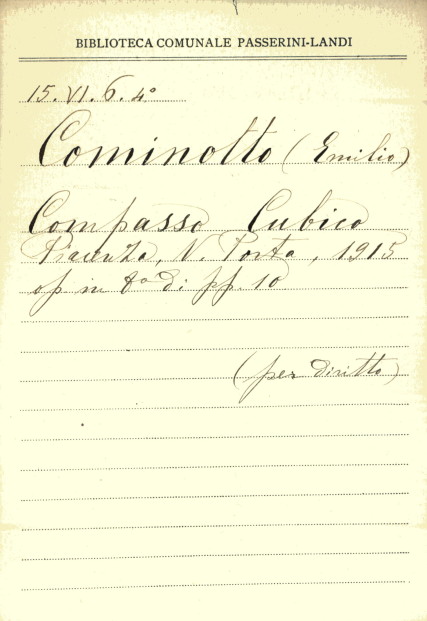 BIBLIOTECA COMUNALE PASSERINI-LANDI
15. VI. 6. 4°
Cominotto (Emilio)
Compasso Cubico
Piacenza, V. Porta, 1915
op in 8° di pp. 10
(per diritto)